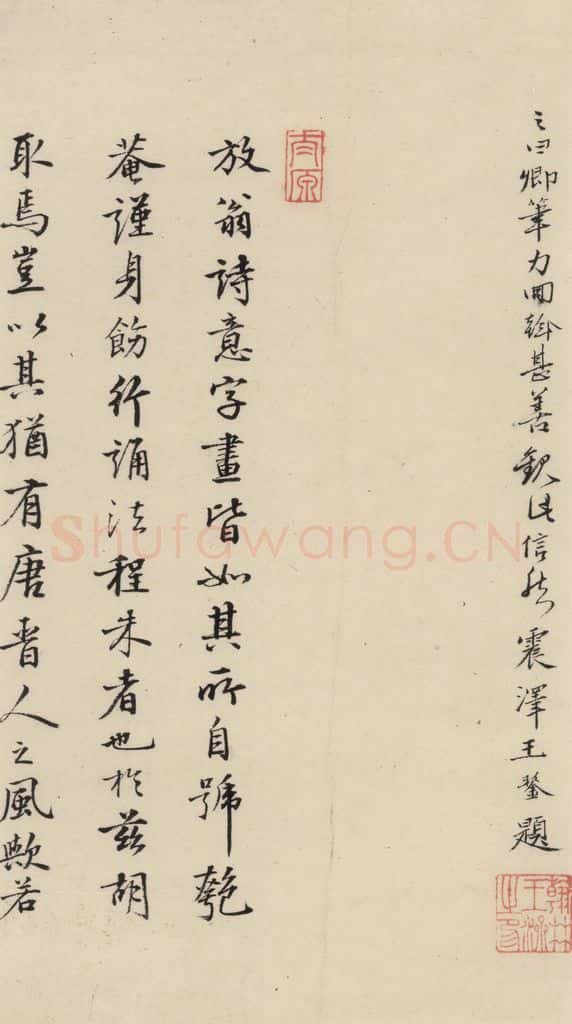 之曰卿筆力回斡甚善觀此信然震澤王鏊題
放翁詩意字畫皆如其所自號匏
菴謹身飭行誦法程朱者也於茲胡
取焉豈以其猶有唐晉人之風歟若
Shufawang.CN